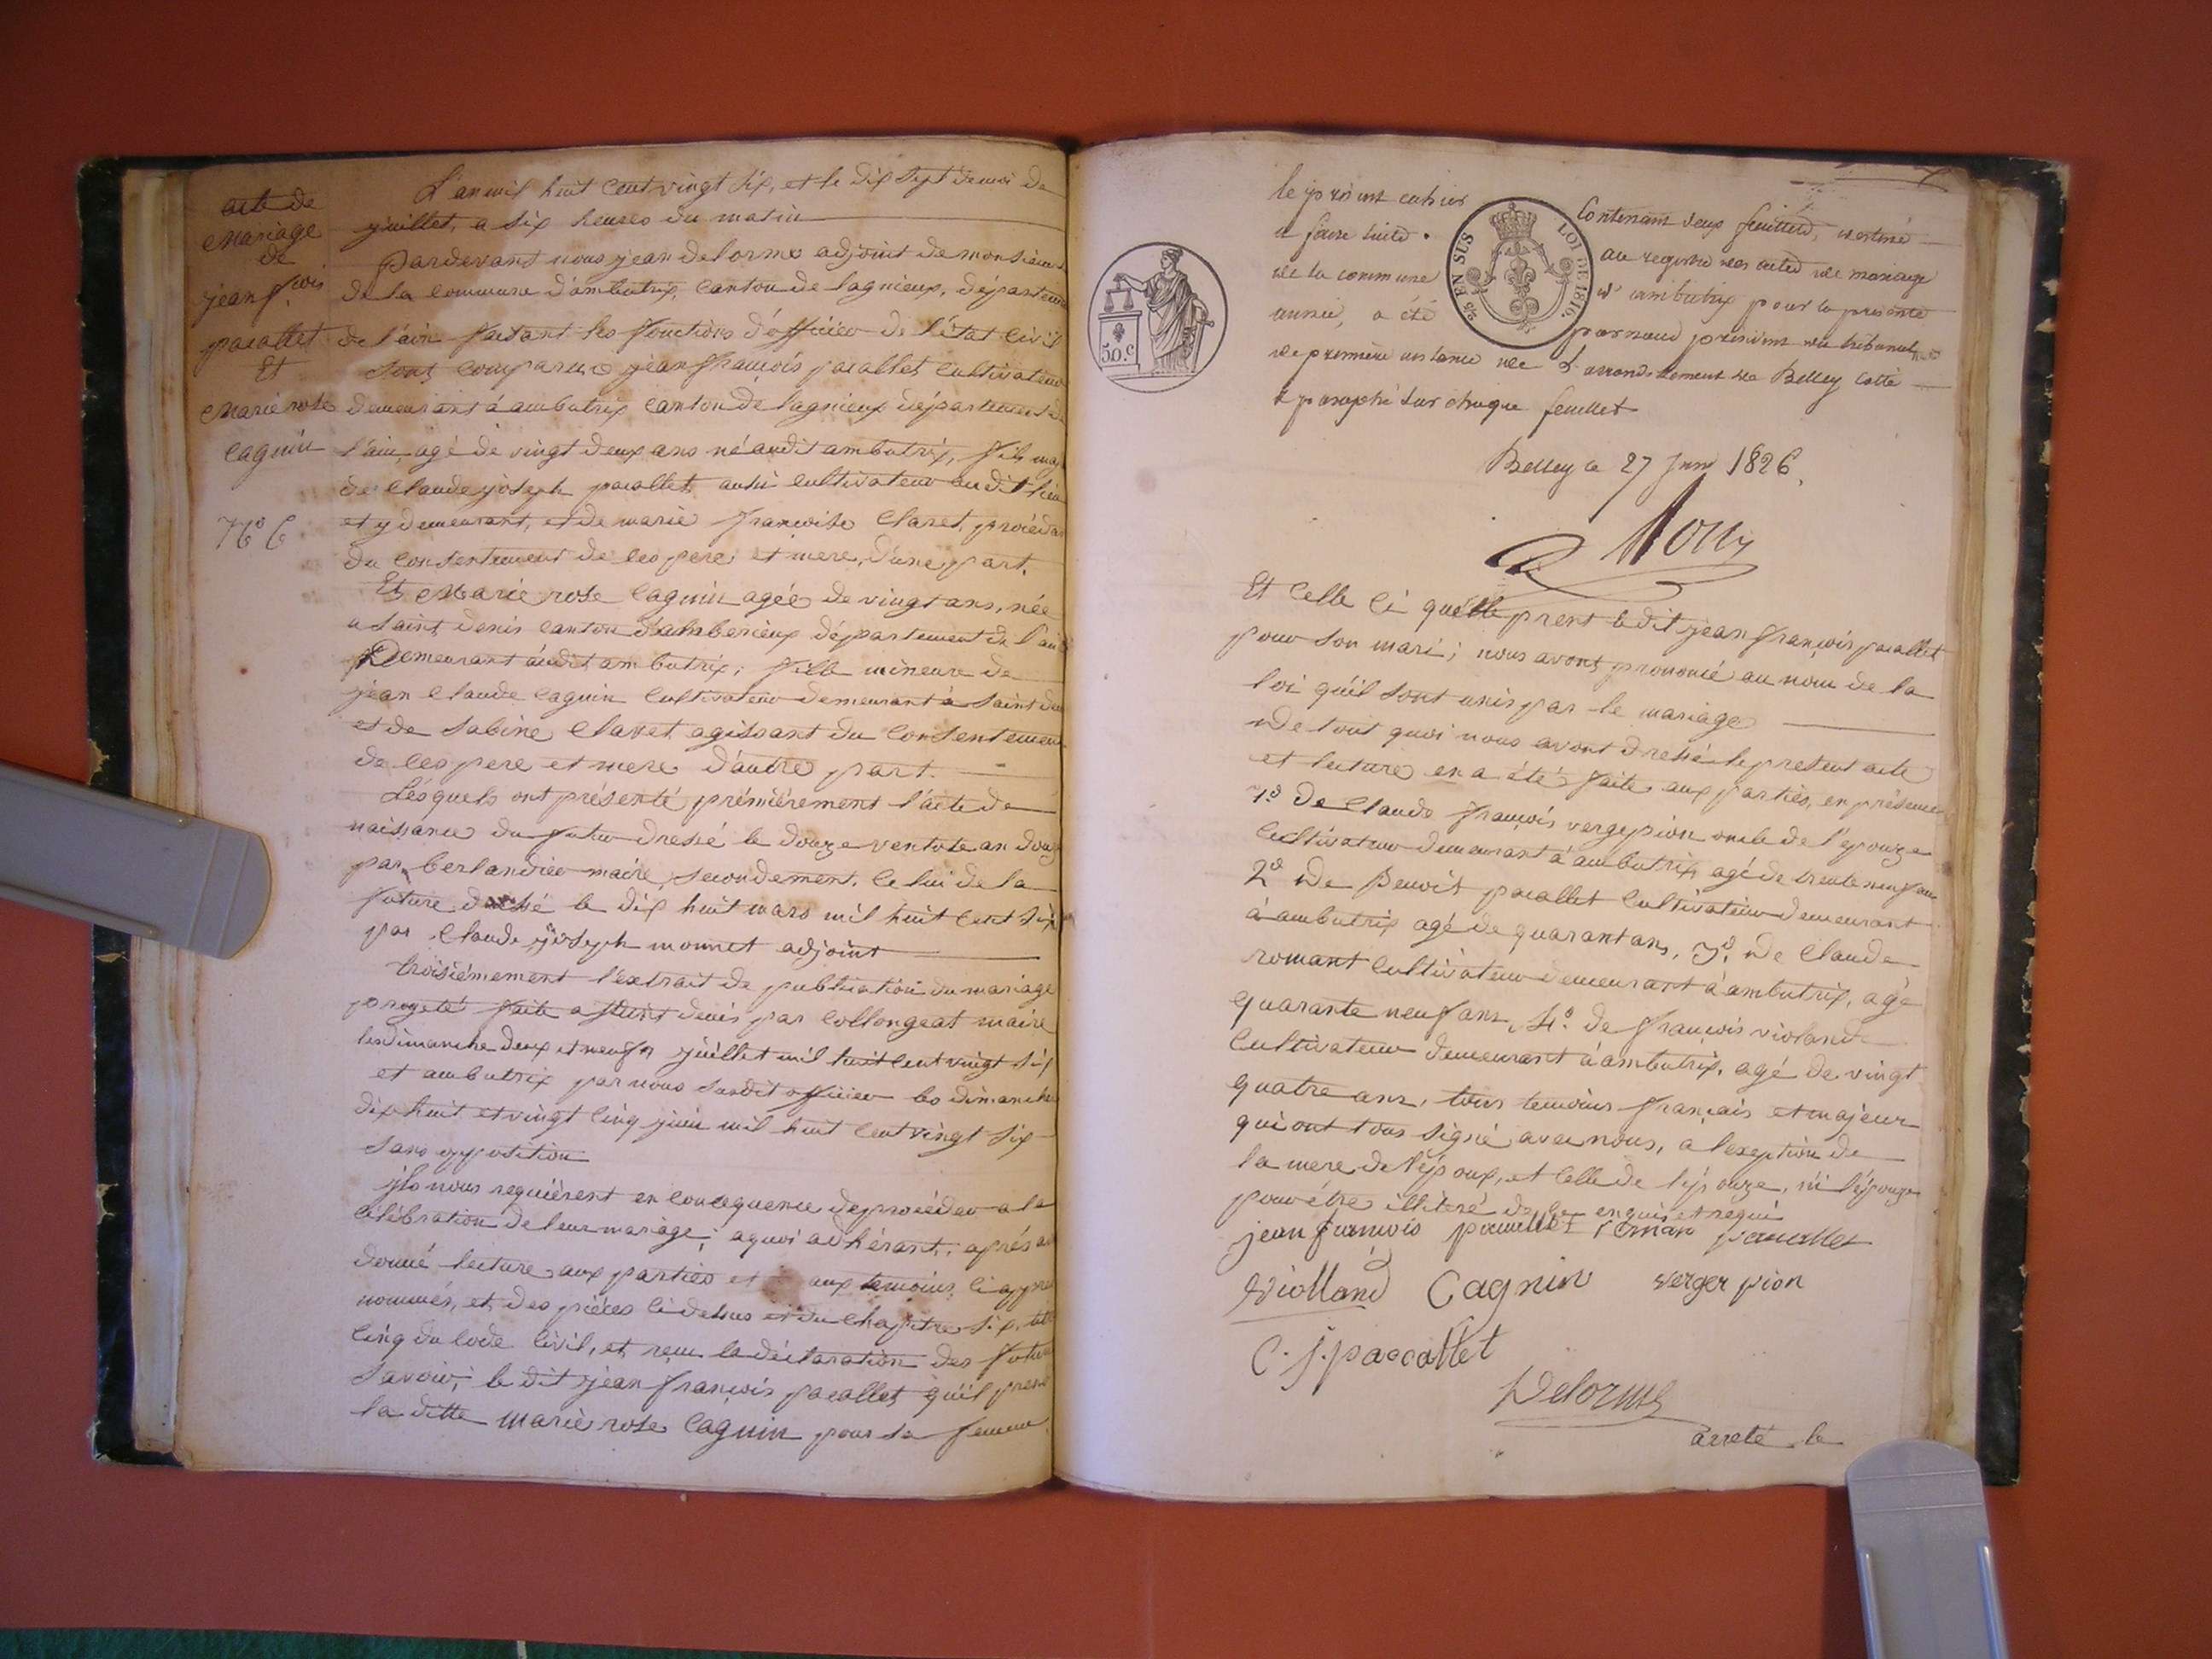 acte de
Mariage
de
jean f.cois
pacallet
Et
Marie rose
Cagnin
N.º 6
L'an mil huit cent vingt six, et le dix sept du moi de
juillet, a six heures du matin
Pardevant nous jean delorme adjoint de monsieur
de la commune d'ambutrix, canton de lagnieux, départeme
de l'ain faisant les fonctions d'officier de l'état civil
sont comparus jean françois pacallet cultivateur
demeurant a ambutrix canton de lagnieux département de
l'ain, agé de vingt deux ans né audit ambutrix, fils maj
de claude joseph pacallet aussi cultivateur audit lieu
et y demeurant, et de marie françoise Claret, procédan
du consentement de ces pere et mere, d'une part.
Et Marie rose Cagnin agée de vingt ans, née
a saint denis canton d'amberieux département de l'ain
Demeurant audit ambutrix; fille mineure de
jean claude cagnin cultivateur demeurant à saint den
et de sabine Claret agissant du consentement
de ces pere et mere d'autre part.
Lésquels ont présenté prémièrement l'acte de
naissance du futur dressé le douze ventose an douze
par berlandier maire, secondement. celui de la
future dressé le dix huit mars mil huit cent six
par claude joseph monnet adjoint
troisièmement l'extrait de publication du mariage
progeté faite a saint denis par collongeat maire
les dimanche deux et neuf juillet mil huit cent vingt six
et ambutrix par nous susdit officier les dimanche
dix huit et vingt cinq juin mil huit cent vingt six
sans opposition
ils nous requièrent en concequence de procéder a la
célébration de leur mariage; a quoi adhérant; aprés a
donné lecture aux parties et aux temoins ci apres
nommés, et des pièces ci dessus et du chapitre six, titre
cinq du code civil, et reçu la déclaration des futur
savoir; le dit jean françois pacallet qu'il prent
la ditte marie rose cagnin pour sa femme
le présent cahier
à faire suite
de la commune
année, a été
2/5 EN SUS
LOI DE 1816.
50.c
Contenant deux feuillets, destiné
au registre des actes de mariage
d'ambutrix pour la présente
par nous président du tribunal
de première instance de l'arrondissement de Belley cotté
& paraphé sur chaque feuillet
Belley ce 27 Juin 1826.
Et celle ci quélle prent ledit jean françois pacallet
pour son mari; nous avons prononcé au nom de la
loi qu'il sont unis par le mariage
De tout quoi nous avont dressé le present acte
et lecture en a été faite aux parties, en présence
1.º de Claude françois vergepion oncle de l'épouze
cultivateur demeurant à ambutrix agé de trente neuf ans
2.º De Benoit pacallet cultivateur demeurant
à ambutrix agé de quarant ans, 3.º De Claude
romant cultivateur demeurant à ambutrix, agé
quarante neuf ans, 4.º de françois violand
cultivateur demeurant à ambutrix, agé de vingt
quatre ans, tous temoins français et majeur
qui ont tous signé avec nous, a l'exeption de
la mere de l'époux, et celle de l'épouze, ni l'épouze
pour être illiteré de ce enquis et requi
jean françois pacallet roman pacallet
Violland Cagnin verger pion
C. j. paccallet
Delorme
arreté le